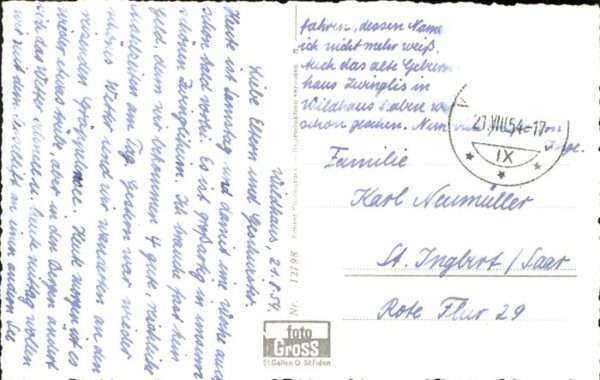 Wildhaus, 21.8.54
Liebe Eltern und Geschwister.
Heute ist Samstag und damit eine Woche auch
schon bald vorbei. Es ist großartig in unserm
schönen Zwingliheim. Ich brauche fast kein
Geld, denn wir bekommen 4 gute, reichliche
Mahlzeiten am Tag. Gestern war wieder
schönes Wetter und wir wanderten an den
Heute morgen ist es
wieder etwas trübe, aber in den Bergen ändert
sich das Wetter schnell u. heute mittag wollen
wir mit dem an einen See
fahren, dessen Name
ich nicht mehr weiß.
Auch das alte Geburts-
haus Zwinglis in
Wildhaus haben wir
schon gesehen. Nun
Inge.
21.VIII.54-17
IX
Familie
Karl Neumüller
St. Ingbert / Saar
Rote Flur 29
Nr. 12198
foto
GROSS
St.Gallen O St.Fiden